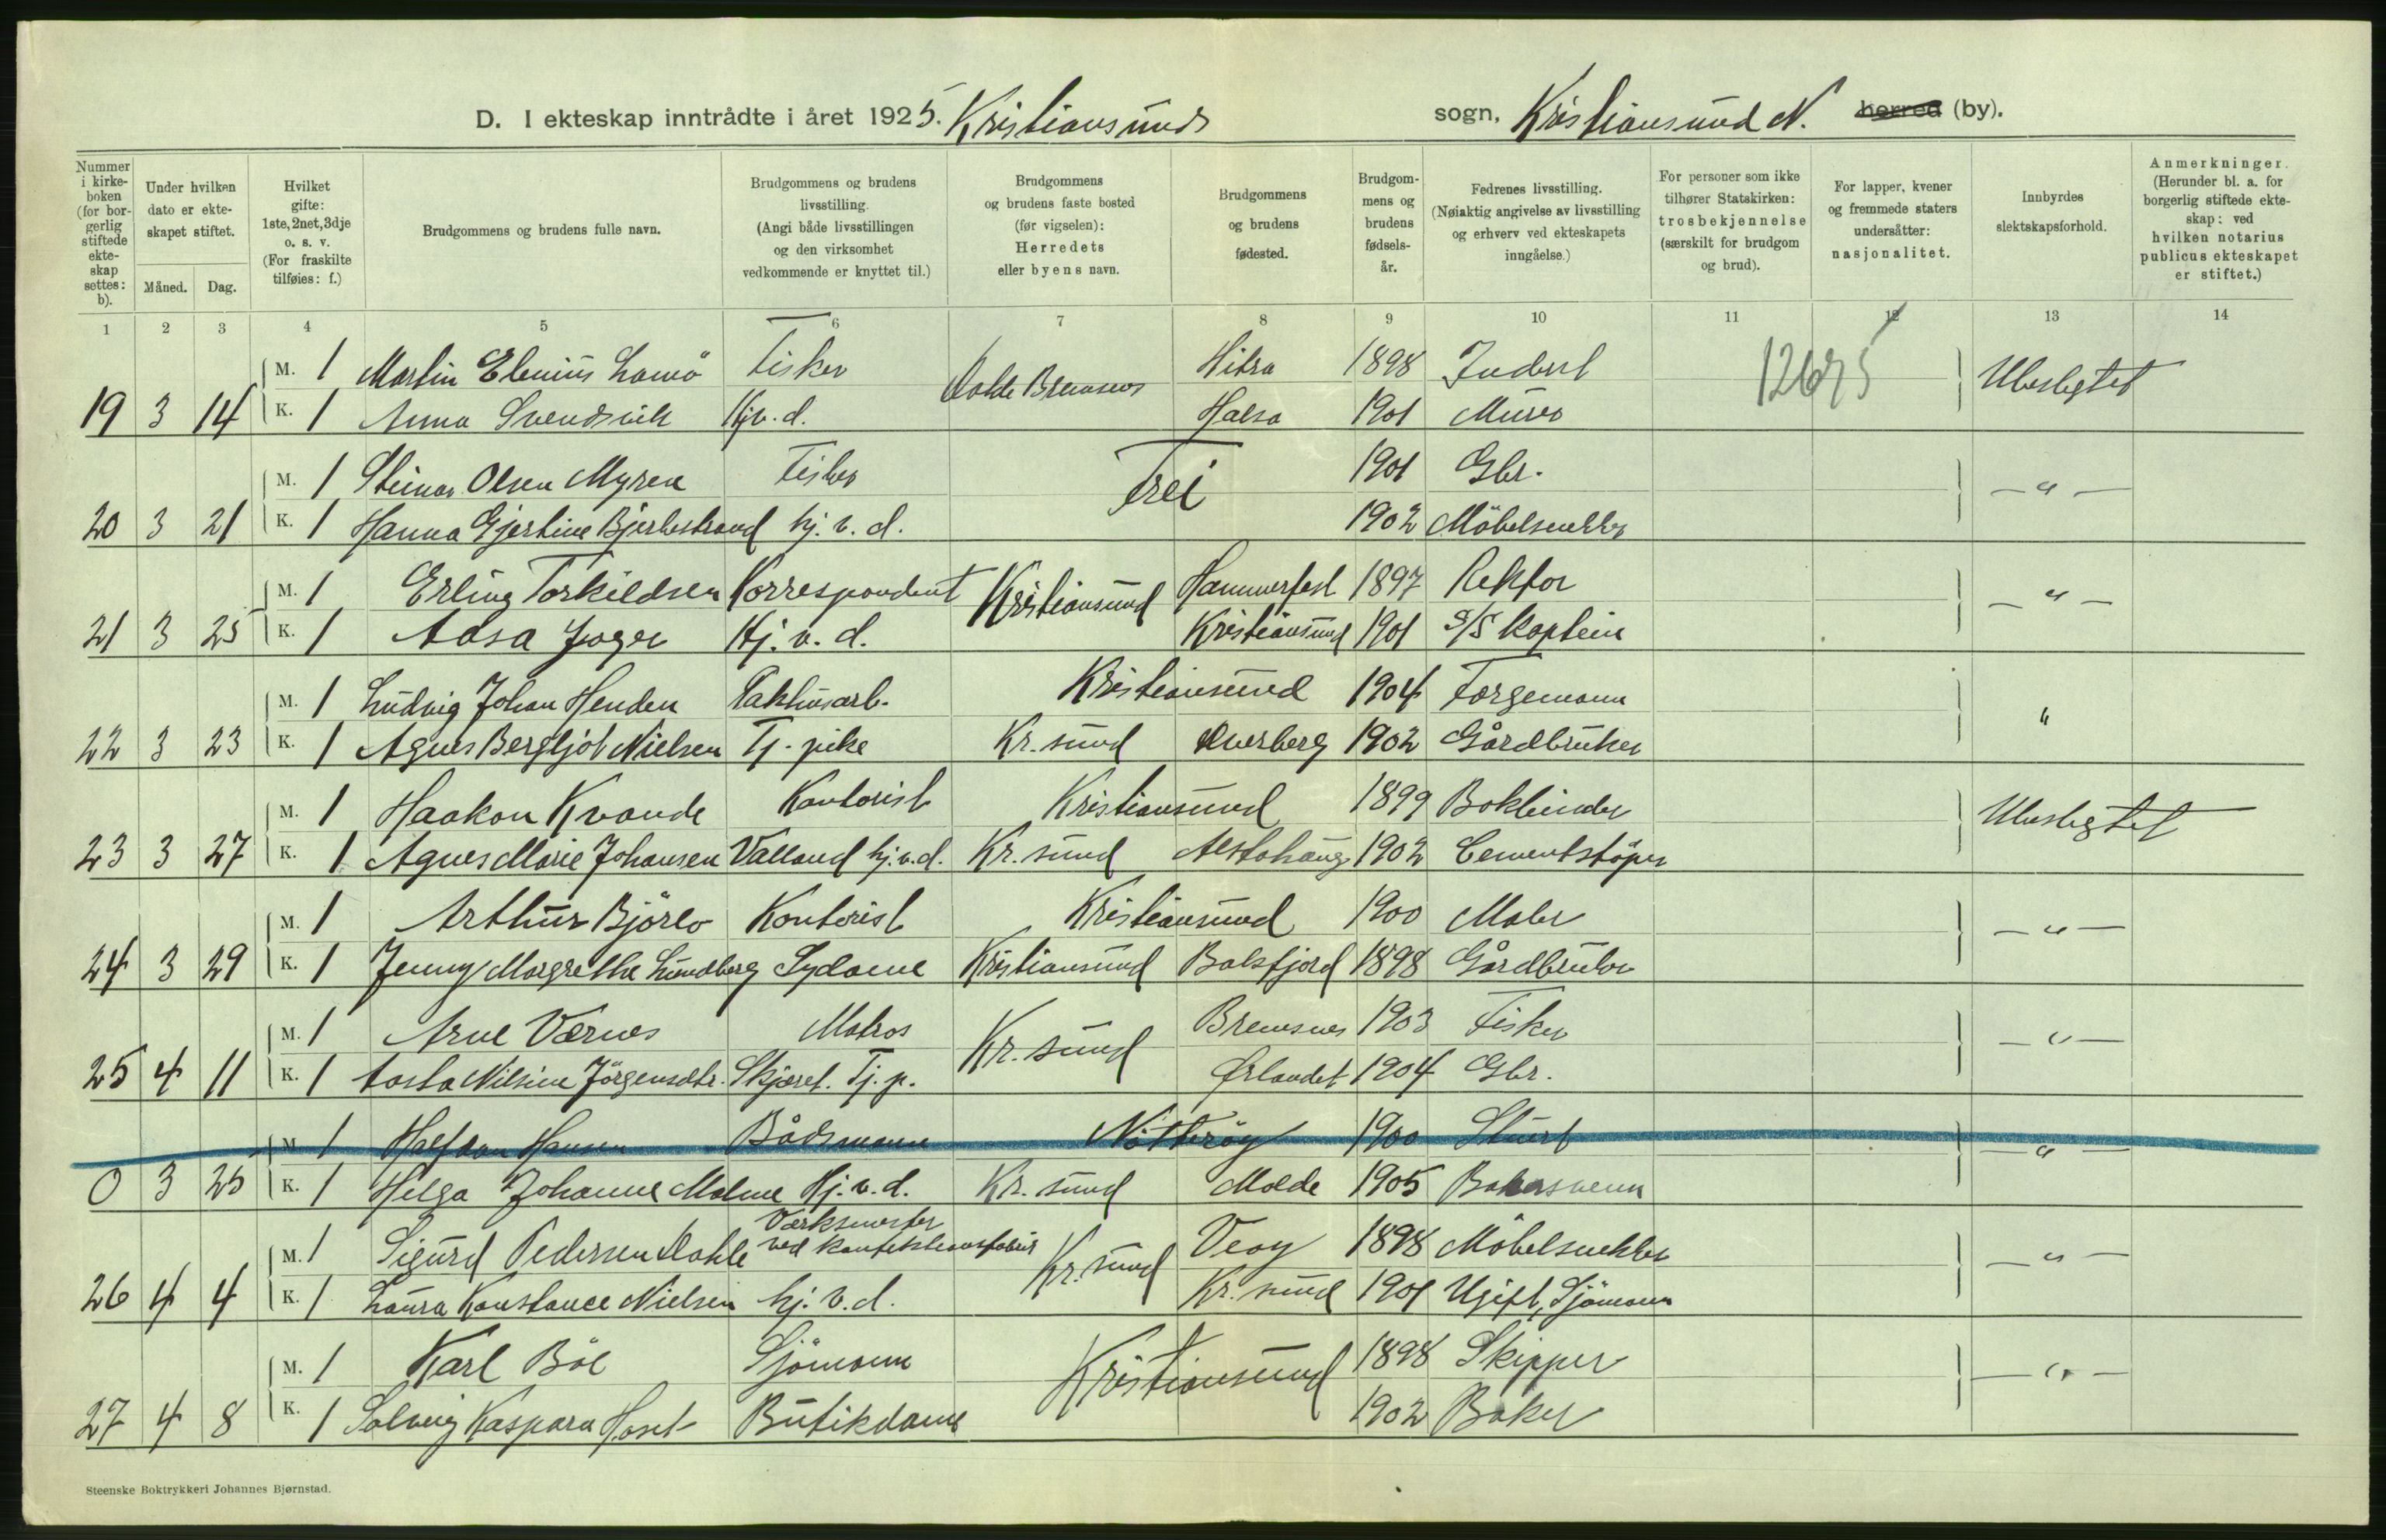 D. I ekteskap inntrådte i året 1925. Kristiansunds sogn, Kristiansund N. herred (by).
Nummer i kirkeboken (for borgerlig stiftede ekteskap settes: b).
Under hvilken dato er ekteskapet stiftet.
Måned. Dag.
Hvilket gifte: 1ste, 2net, 3dje o. s. v. (For fraskilte tilføies: f.)
Brudgommens og brudens fulle navn.
Brudgommens og brudens livsstilling. (Angi både livsstillingen og den virksomhet vedkommende er knyttet til.)
Brudgommens og brudens faste bosted (før vigselen): Herredets eller byens navn.
Brudgommens og brudens fødested.
Brudgommens og brudens fødselsår.
Fedrenes livsstilling. (Nøiaktig angivelse av livsstilling og erhverv ved ekteskapets inngåelse.)
For personer som ikke tilhører Statskirken: trosbekjennelse (særskilt for brudgom og brud).
For lapper, kvener og fremmede staters undersåtter: nasjonalitet.
Innbyrdes slektskapsforhold.
Anmerkninger. (Herunder bl. a. for borgerlig stiftede ekteskap: ved hvilken notarius publicus ekteskapet er stiftet.)
1 2 3 4 5 6 7 8 9 10 11 12 13 14
M. 1 Martin Elenius Lamö Fisker Bremsnes Hitra 1898 Inderst 12695 Ubeslegtet
19 3 14 K. 1 Anna Svendsvik Hj.v.d. Halsa 1901 Murer
M. 1 Steinar Olsen Myren Fisker Frei 1901 Gbr. — " —
20 3 21 K. 1 Hanna Gjertine Bjerkestrand hj. v. d. 1902 Möbelsnekker
M. 1 Erling Torkildsen Korrespondent Kristiansund Hammerfest 1897 Rektor — " —
21 3 25 K. 1 Aasa Jager Hj. v. d. Kristiansund 1901 S/S Kaptein
M. 1 Ludvig Johan Henden Pakhusarb. Kristiansund 1904 Fergemann "
22 3 23 K. 1 Agnes Bergljot Nielsen Tj. pike Kr. sund 1902 Gårdbruker
M. 1 Haakon Kvande Kontorist Kristiansund 1899 Bokbinder Ubeslegtet
23 3 27 K. 1 Agnes Marie Johansen Valland hj.v.d. Kr. sund Alstahaug 1902 Cementstöper
M. 1 Arthur Björlo Kontorist Kristiansund 1900 Maler — " —
24 3 29 K. 1 Jenny Margrethe Lundberg Sydame Kristiansund Balsfjord 1898 Gårdbruker
M. 1 Arne Værnes Matros Kr. sund Bremsnes 1903 Fisker — " —
25 4 11 K. 1 Aasta Nilsine Jörgensdtr. Skjæret. Tj. p. Ørlandet 1904 Gbr.
M. 1 Halfdan Hansen Bådsmann Nötteröy 1900 Stuert — " —
0 3 25 K. 1 Helga Johanne Malme Hj. v. d. Kr. sund Molde 1905 Bakersvenn
M. 1 Sigurd Pedersen Dahle Verksmester ved konfektionsfabrik Kr. sund Veøy 1898 Möbelsnekker — " —
26 4 4 K. 1 Laura Konstance Nielsen hj. v. d. Kr. sund 1901 Ugift, Sjömann
M. 1 Karl Böe Sjömann Kristiansund 1898 Skipper — " —
27 4 8 K. 1 Solveig Kaspara Hoset Butikdame 1902 Baker
Steenske Boktrykkeri Johannes Bjørnstad.